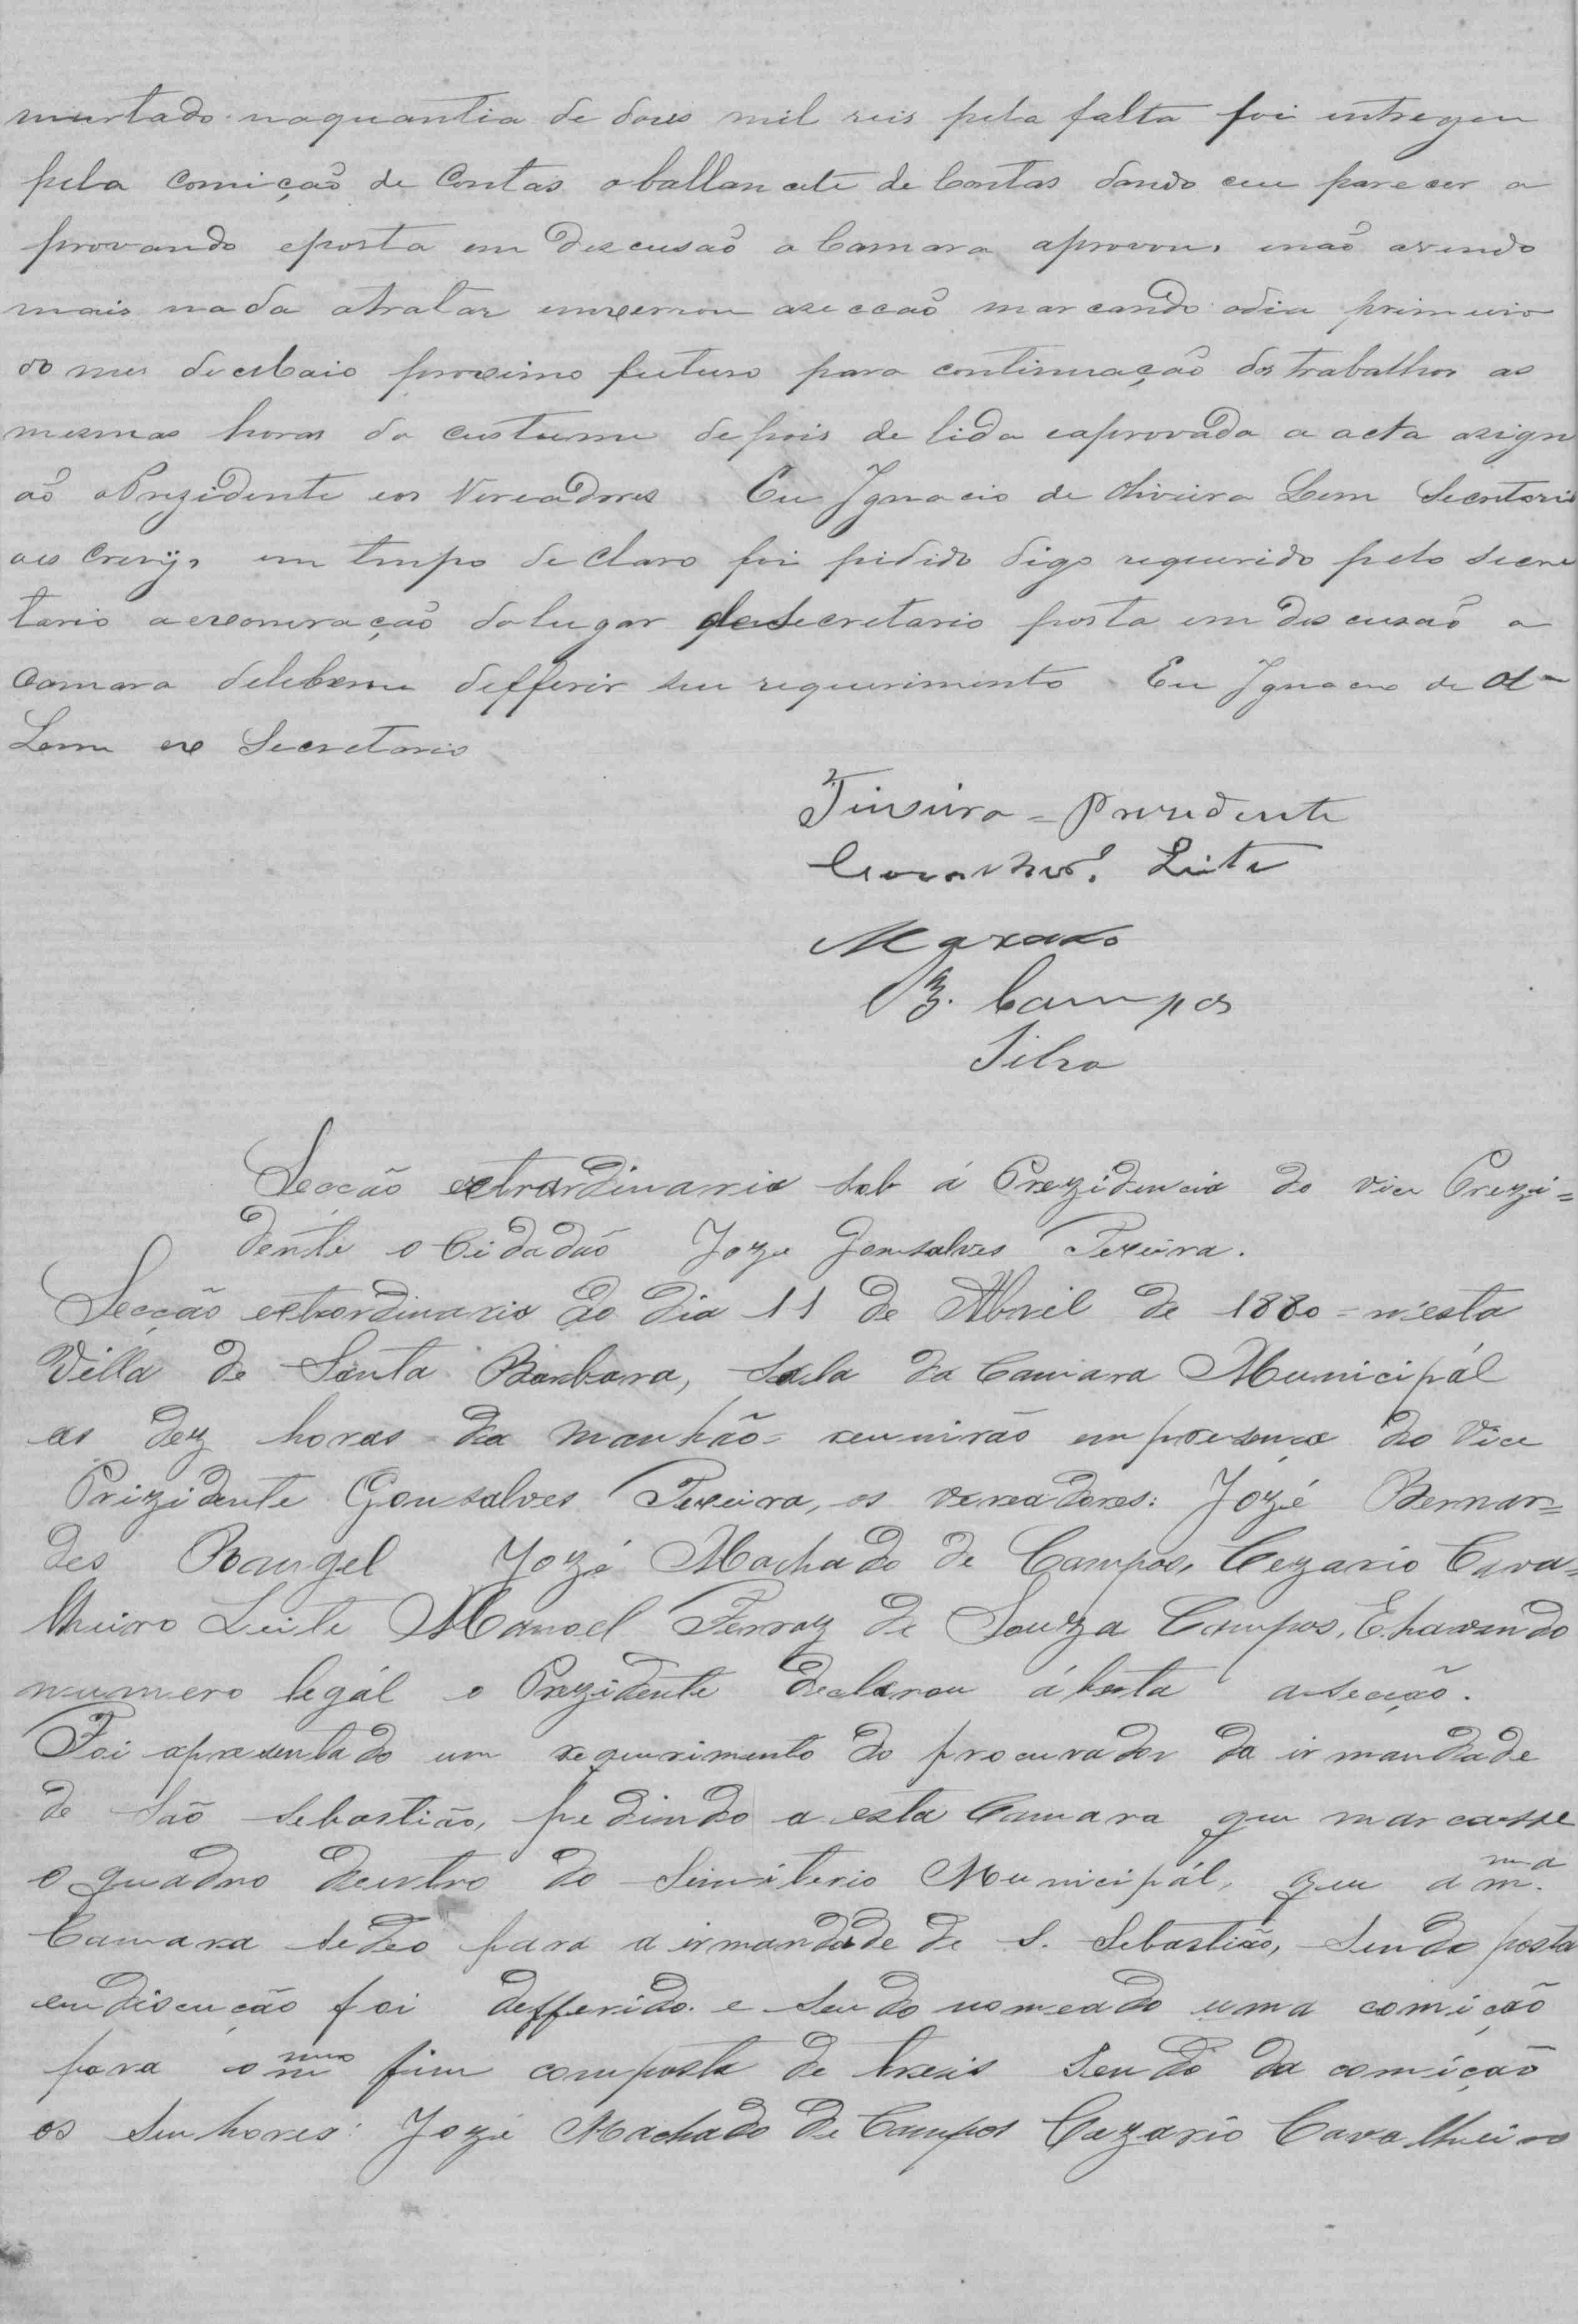 murtado naquantia de dous mil reis pela falta foi entregeu
pela comiçaõ de Contas oballancete de Contas dando ceu parecer a
provando eposta em Discusaõ a Camara aprovou, enaõ avendo
mais nada atratar enxerrou asecçaõ marcando odia primeiro
do mes de Maio proximo futuro para continuaçaõ dos trabalhos as
mesmas horas do custume depois de lida eaprovada a acta asign
aõ oPrezidente eos Vereadores Eu Ignacio de Oliveira Leme Secretario
aescrevy, em tempo declaro foi pidido digo requerido pelo secre
tario aexoneraçaõ dolugar desecretario posta em discusaõ a
Camara deliberou defferir seu requerimento Eu Ignacio de Olª
Leme ex Secretario
Teixeira = Prezidente
Cavalhrº. Leite
Maxado
B. Campos
Silva
Secção extrordinaria sob á Prezidencia do vice Prezi=
dente o Cidadaõ Joze Gonsalves Texeira.
Secção extrordinaria do dia 11 de Abril de 1880 = n'esta
Villa de Santa Barbara, Sala da Camara Municipál
as dez horas da manhão reunirão em presença do Vice
Prizidente Gonsalves Texeira, os vereadores: Jozé Bernar=
des Rangel Jozé Machado de Campos, Cezario Cava=
lheiro Leite Manoel Ferraz de Souza Campos, E havendo
numero legál o Prezidente declarou áberta asecção.
Foi apresentado um requerimento do procurador da irmandade
de São Sebastião, pedindo a esta Camara que marcasse
o quadro dentro do Simiterio Municipál, que a m.ma
Camara sedeo para a irmandade de S. Sebastião, Sendo posta
emdiscução foi defferido. e Sendo nomeado uma comição
para o mmo fim composta de treis Sendo da comição
os Senhores: Jozé Machado de Campos Cezario Cavalheiro